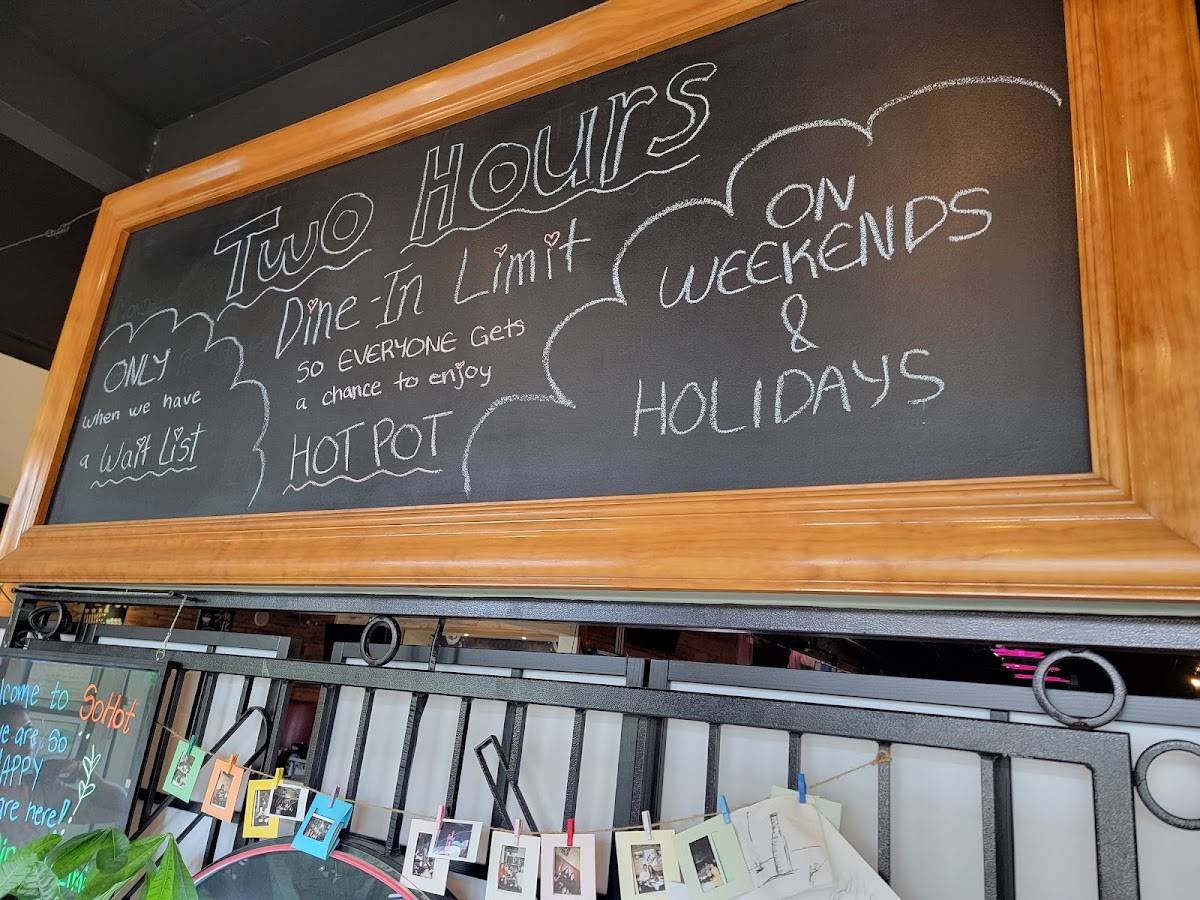 Two Hours
Dine-In Limit
so EVERYONE Gets
a chance to enjoy
HOT POT
ONLY
when we have
a Wait List
ON
WEEKENDS
&
HOLIDAYS
lcome to SoHot
we are so
HAPPY
are here!